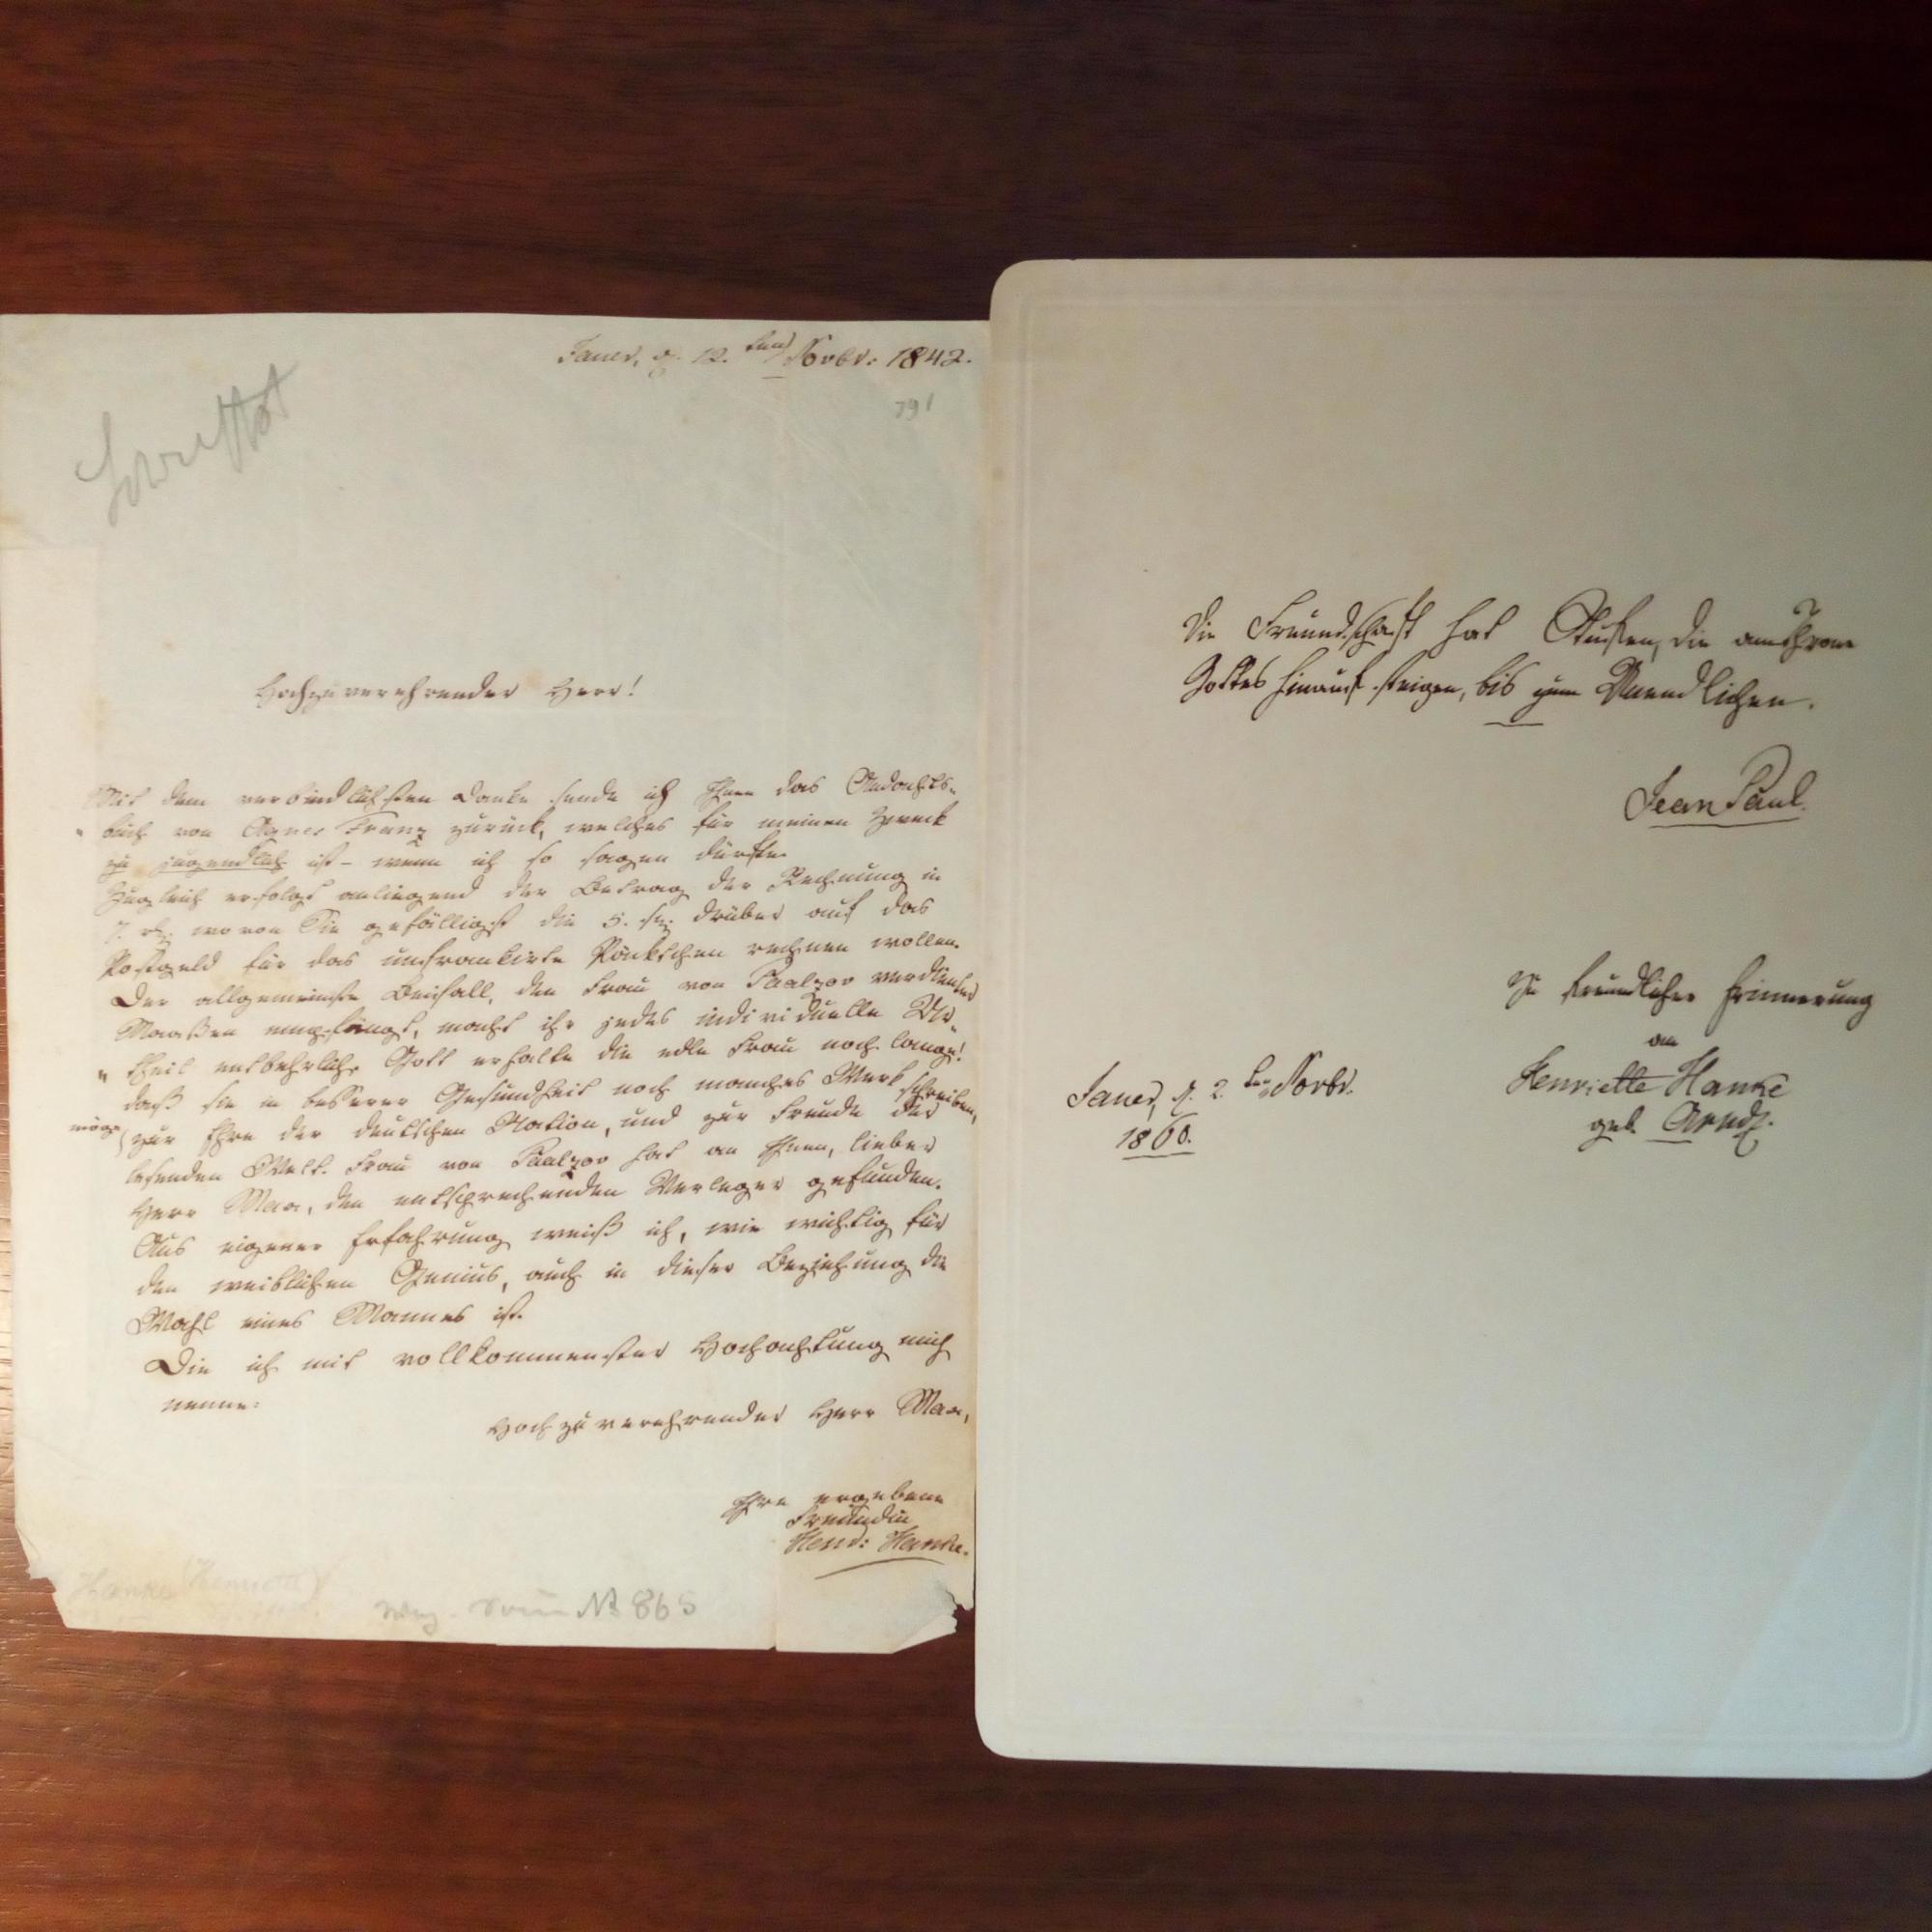 Jauer, d. 12.ten Novbr: 1842.
791
Hochzuverehrender Herr!
Mit dem verbindlichsten Danke sende ich Ihnen das Andachts-
"buch von Agnes Franz zurück, welches für meinen Zweck
zu jugendlich ist – wenn ich so sagen dürfte.
Zugleich erfolgt anliegend der Betrag der Rechnung in
7. rt. wovon Sie gefälligst die 5. sg. drüber auf das
Postgeld für das unfrankirte Päcktchen rechnen wollen.
Der allgemeinste Beifall, den Frau von Paalzow verdienter
Maaßen empfängt, macht ihr jedes individuelle Ur-
"theil entbehrlich. Gott erhalte die edle Frau noch lange!
daß sie in besserer Gesundheit noch manches Werk schreiben,
möge, zur Ehre der deutschen Nation, und zur Freude der
lesenden Welt. Frau von Paalzow hat an Ihnen, lieber
Herr Max, den entsprechenden Verleger gefunden.
Aus eigener Erfahrung weiß ich, wie wichtig für
den weiblichen Genius, auch in dieser Beziehung die
Wahl eines Mannes ist.
Die ich mit vollkommenster Hochachtung mich
nenne:
Hochzuverehrender Herr Max,
Ihre ergebene
Freundin
Henr: Hanke.
Hanke (Henriette)
No 865
Die Freundschaft hat Stufen, die am Throne
Gottes hinauf steigen, bis zum Unendlichen.
Jean Paul.
Zu freundlicher Erinnerung
an
Henriette Hanke
geb. Arndt.
Jauer, d. 2.ten Novbr.
1860.